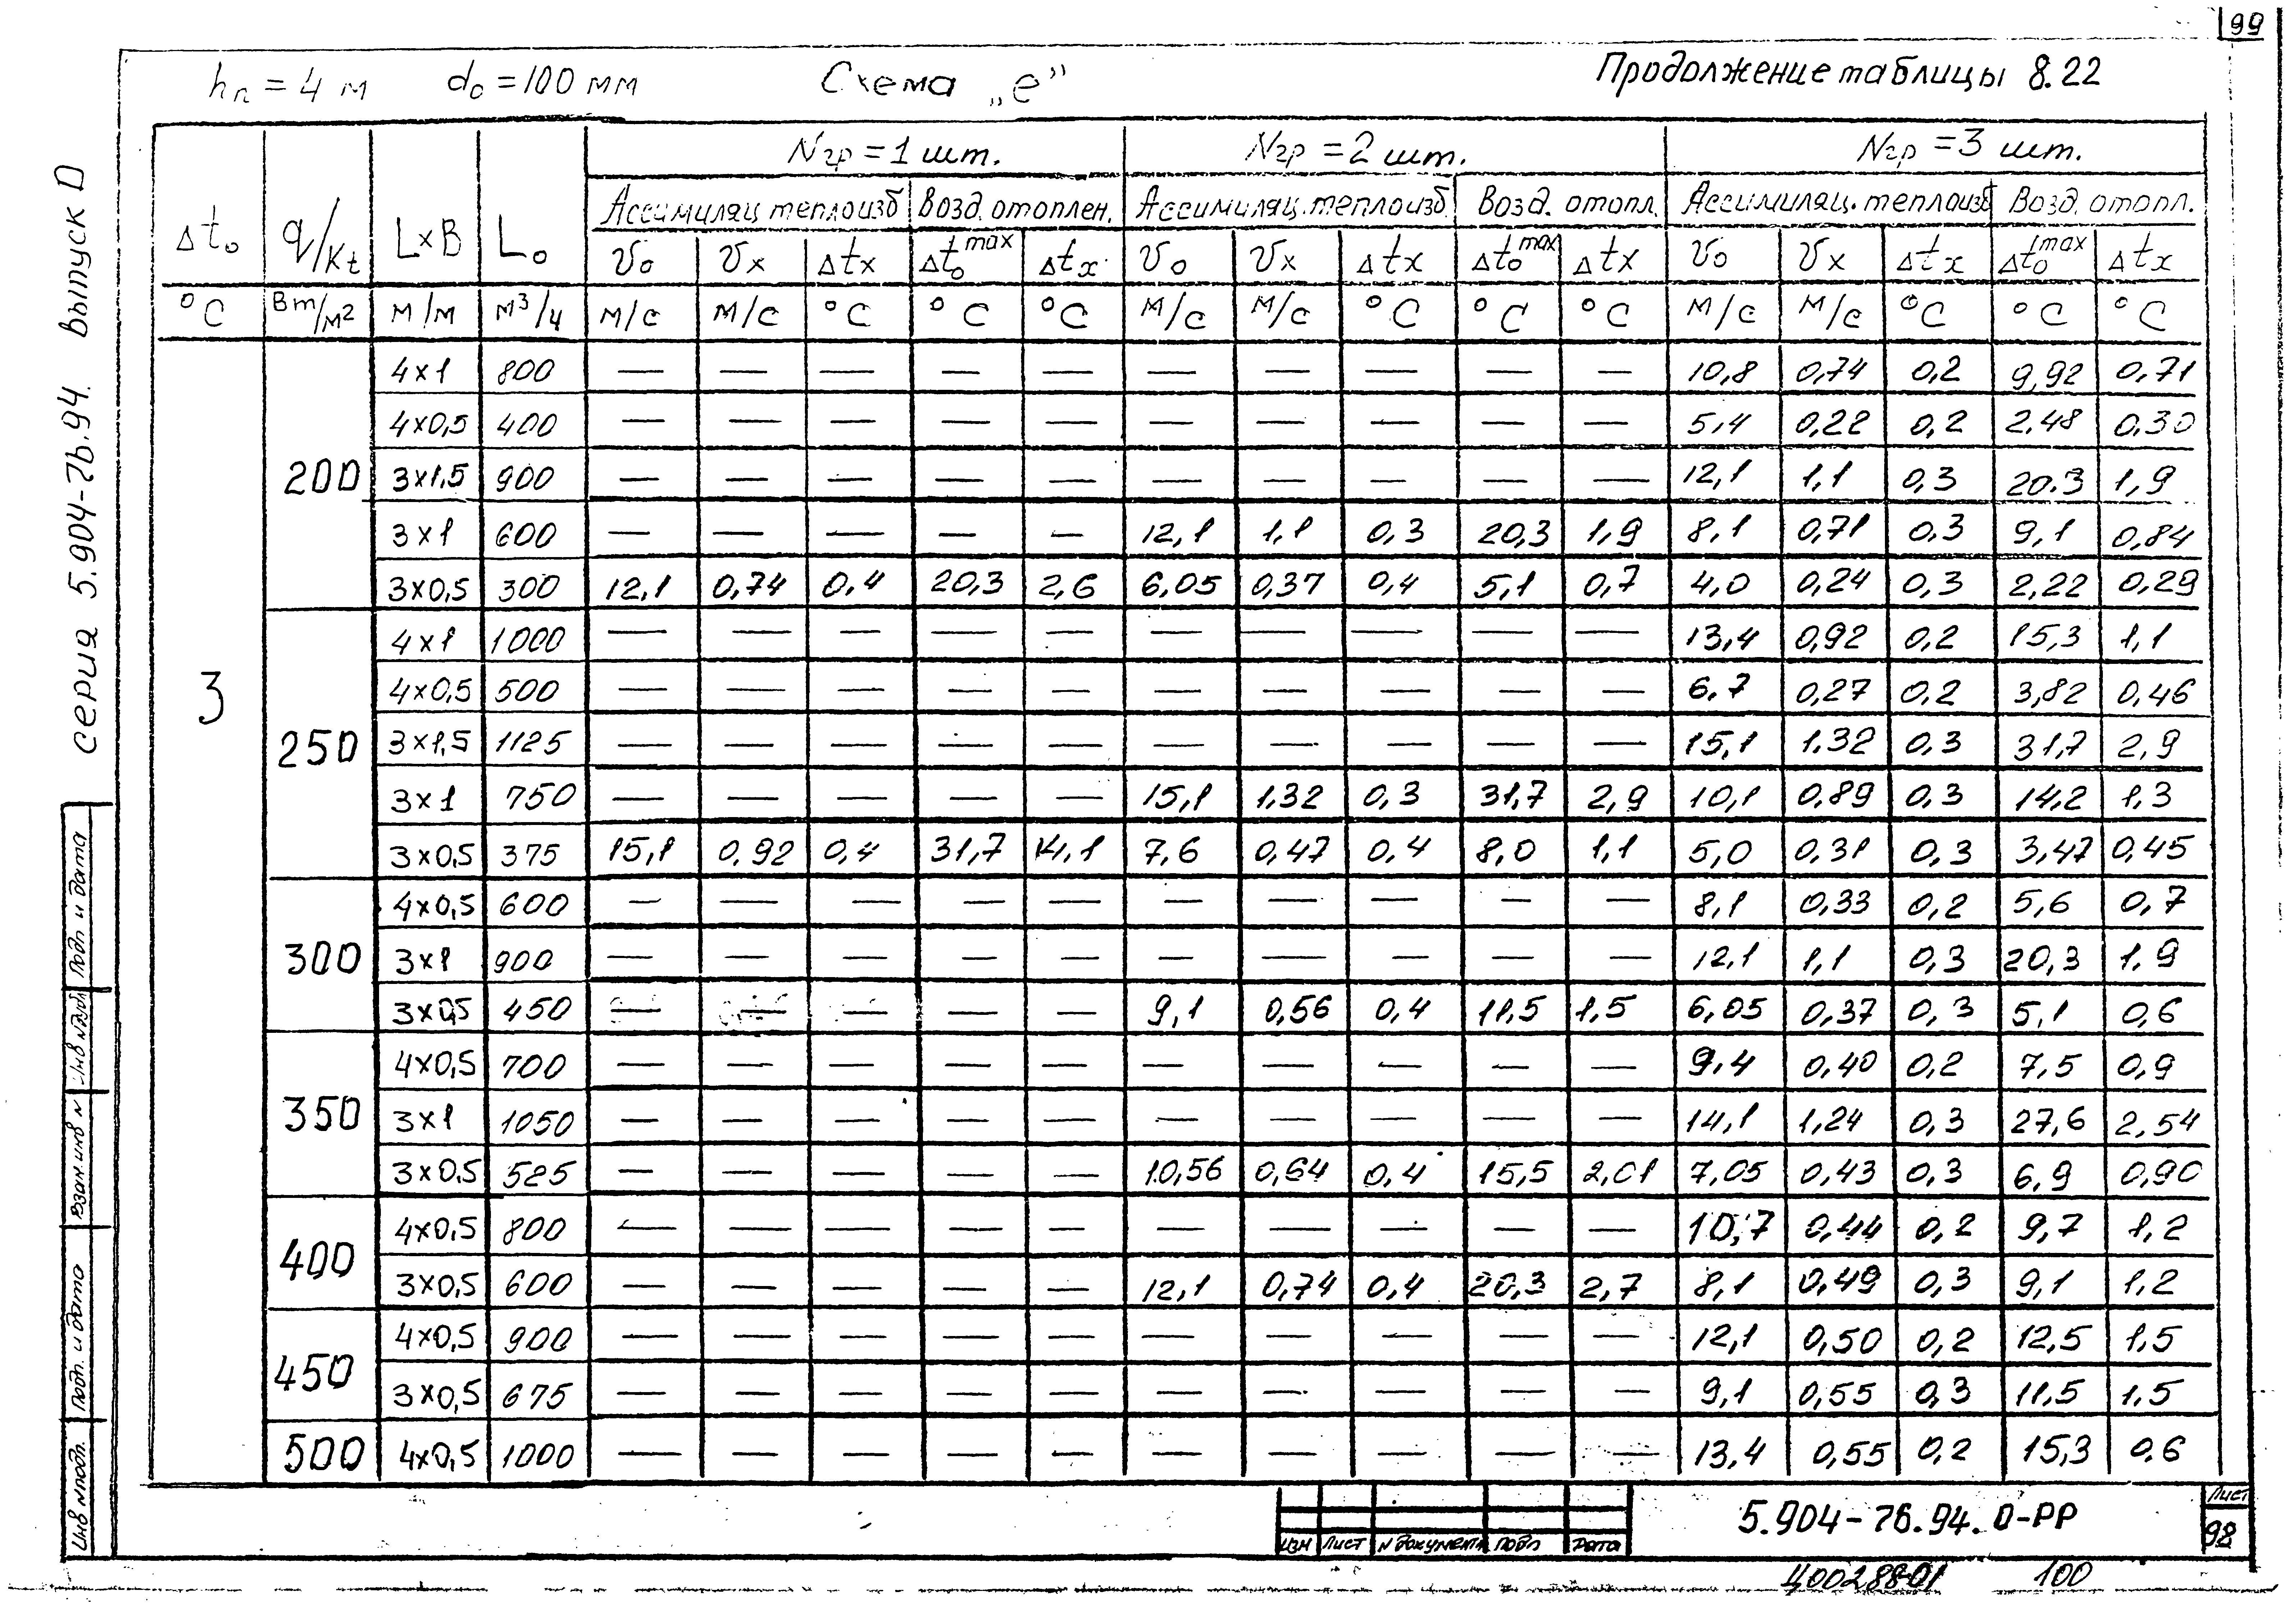 99
hп = 4 м d₀ = 100 мм Схема „е” Продолжение таблицы 8.22
серия 5.904-7б.94. выпуск 0
Δt₀ q/Kt L×B L₀ Nгр = 1 шт. Nгр = 2 шт. Nгр = 3 шт.
Ассимиляц теплоизб Возд. отоплен. Ассимиляц. теплоизб Возд. отопл. Ассимиляц. теплоизб Возд. отопл.
V₀ Vx Δtx Δt₀max Δtx V₀ Vx Δtx Δt₀max Δtx V₀ Vx Δtx Δt₀max Δtx
°C Вт/м² м/м м³/ч м/с м/с °C °C °C м/с м/с °C °C °C м/с м/с °C °C °C
3
200 4×1 800 — — — — — — — — — — 10,8 0,74 0,2 9,92 0,71
4×0,5 400 — — — — — — — — — — 5,4 0,22 0,2 2,48 0,30
3×1,5 900 — — — — — — — — — — 12,1 1,1 0,3 20.3 1,9
3×1 600 — — — — — 12,1 1,1 0,3 20,3 1,9 8,1 0,71 0,3 9,1 0,84
3×0,5 300 12,1 0,74 0,4 20,3 2,6 6,05 0,37 0,4 5,1 0,7 4,0 0,24 0,3 2,22 0,29
250 4×1 1000 — — — — — — — — — — 13,4 0,92 0,2 15,3 1,1
4×0,5 500 — — — — — — — — — — 6,7 0,27 0,2 3,82 0,46
3×1,5 1125 — — — — — — — — — — 15,1 1.32 0,3 31,7 2,9
3×1 750 — — — — — 15,1 1,32 0,3 31,7 2,9 10,1 0,89 0,3 14,2 1,3
3×0,5 375 15,1 0,92 0,4 31,7 14,1 7,6 0,47 0,4 8,0 1,1 5,0 0,31 0,3 3,47 0,45
300 4×0,5 600 — — — — — — — — — — 8,1 0,33 0,2 5,6 0,7
3×1 900 — — — — — — — — — — 12,1 1,1 0,3 20,3 1,9
3×0,5 450 — — — — — 9,1 0,56 0,4 11,5 1,5 6,05 0,37 0,3 5,1 0,6
350 4×0,5 700 — — — — — — — — — — 9,4 0,40 0,2 7,5 0,9
3×1 1050 — — — — — — — — — — 14,1 1,24 0,3 27,6 2,54
3×0,5 525 — — — — — 10,56 0,64 0,4 15,5 2,01 7,05 0,43 0,3 6,9 0,90
400 4×0,5 800 — — — — — — — — — — 10,7 0,44 0,2 9,7 1,2
3×0,5 600 — — — — — 12,1 0,74 0,4 20,3 2,7 8,1 0,49 0,3 9,1 1,2
450 4×0,5 900 — — — — — — — — — — 12,1 0,50 0,2 12,5 1,5
3×0,5 675 — — — — — — — — — — 9,1 0,55 0,3 11,5 1.5
500 4×0,5 1000 — — — — — — — — — — 13,4 0,55 0,2 15,3 0,6
Подп и дата
Инв № дубл
Взам.инв №
Подп. и дата
Инв № подл.
Изм Лист № документа подп Дата
5.904-7б.94.0-РР
Лист
98
Ц00288-01 100